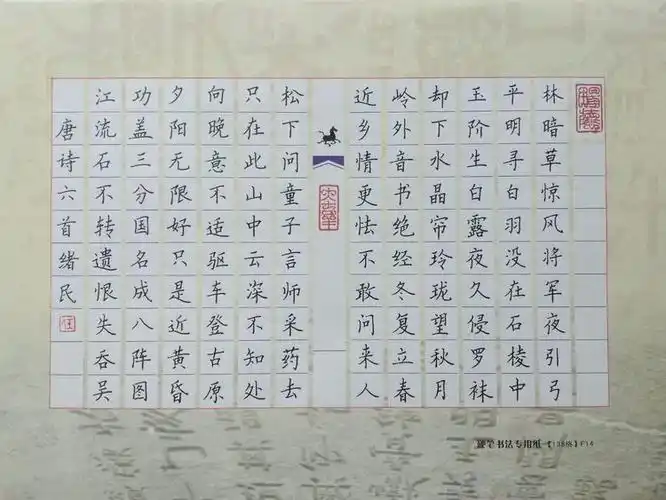 林暗草惊风将军夜引弓
平明寻白羽没在石棱中
玉阶生白露夜久侵罗袜
却下水晶帘玲珑望秋月
岭外音书绝经冬复立春
近乡情更怯不敢问来人
松下问童子言师采药去
只在此山中云深不知处
向晚意不适驱车登古原
夕阳无限好只是近黄昏
功盖三分国名成八阵图
江流石不转遗恨失吞吴
唐诗六首绪民
硬笔书法专用纸